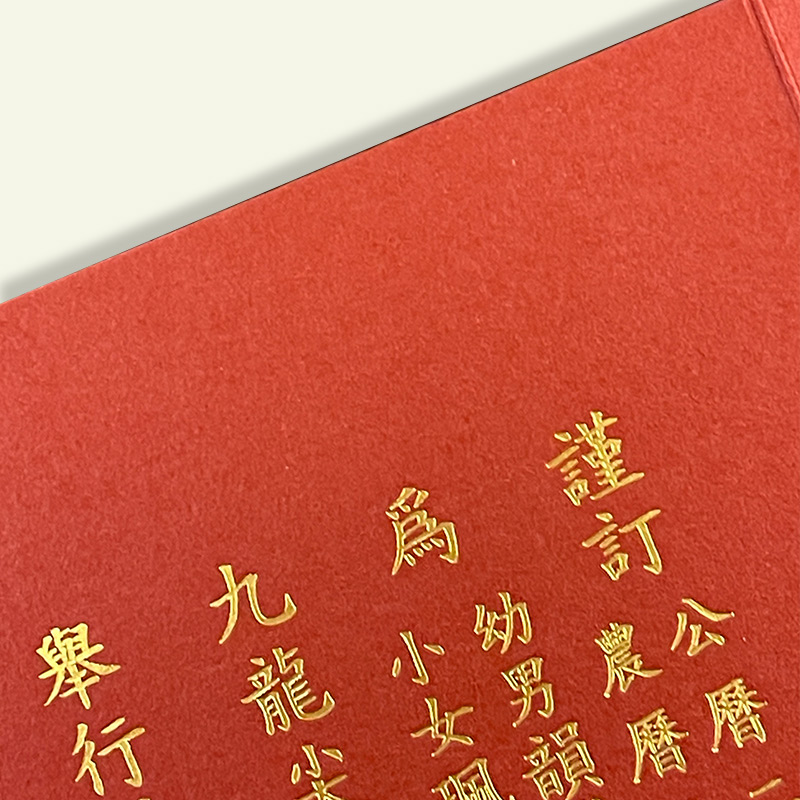 謹訂
公曆一
農曆
為
幼男韻
小女珮
九龍
小
舉行